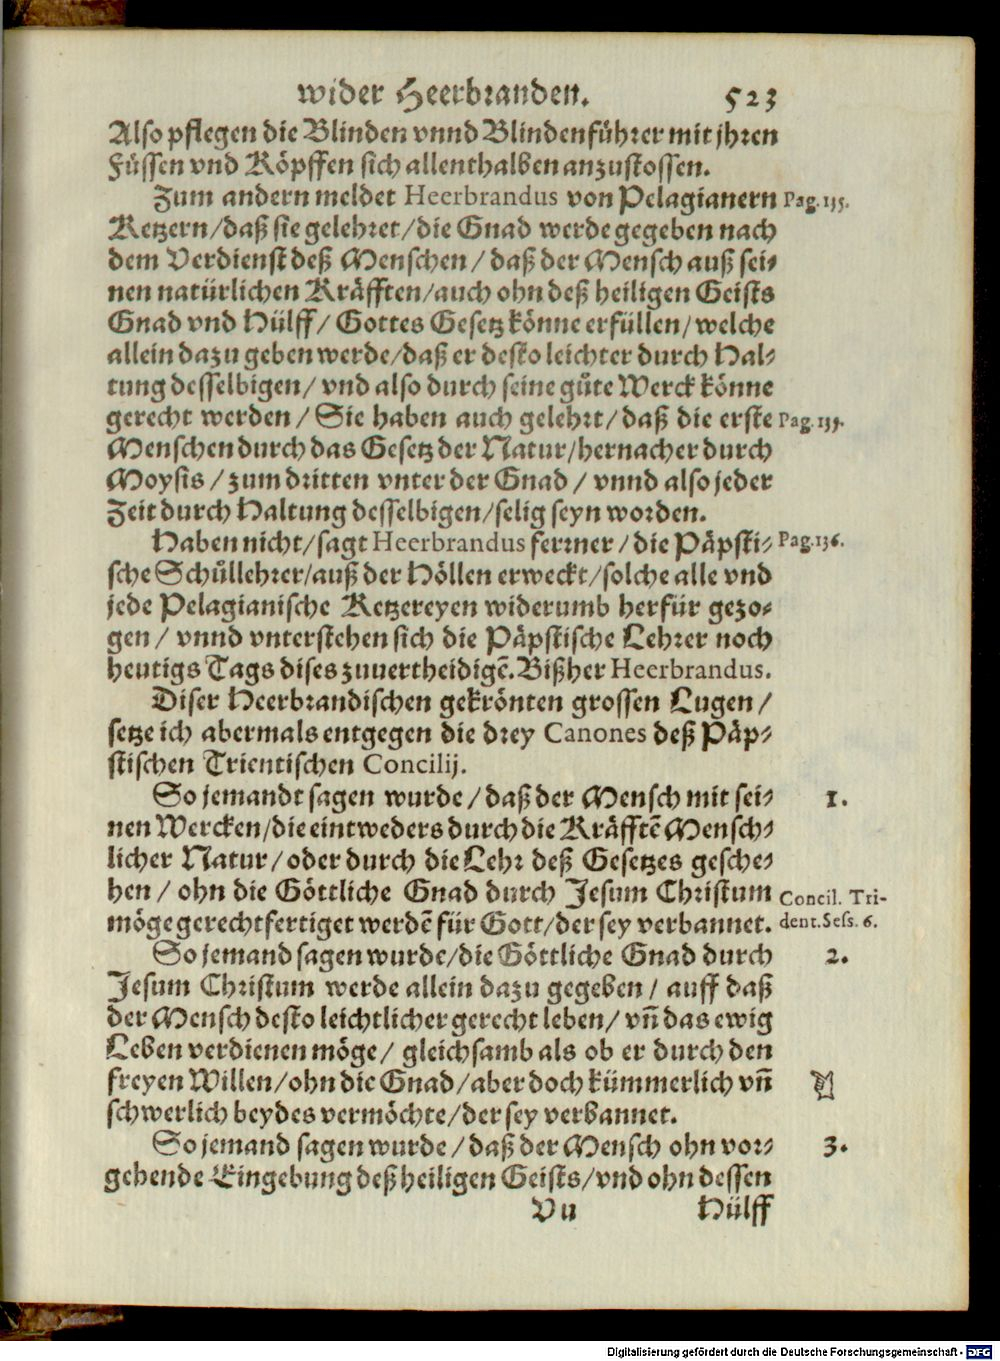 wider Heerbranden. 523
Also pflegen die Blinden vnnd Blindenführer mit jhren
Füssen vnd Köpffen sich allenthalben anzustossen.
Zum andern meldet Heerbrandus von Pelagianern Pag. 135.
Ketzern/daß sie gelehret/die Gnad werde gegeben nach
dem Verdienst deß Menschen/daß der Mensch auß sei⸗
nen natürlichen Kräfften/auch ohn deß heiligen Geists
Gnad vnd Hülff/ Gottes Gesetz könne erfüllen/welche
allein dazu geben werde/daß er desto leichter durch Hal⸗
tung desselbigen/ vnd also durch seine gůte Werck könne
gerecht werden/ Sie haben auch gelehrt/daß die erste Pag. 135.
Menschen durch das Gesetz der Natur/hernacher durch
Moysis/zum dritten vnter der Gnad/ vnnd also jeder
Zeit durch Haltung desselbigen/selig seyn worden.
Haben nicht/sagt Heerbrandus ferrner/die Päpsti⸗ Pag. 136.
sche Schůllehrer/auß der Höllen erweckt/solche alle vnd
jede Pelagianische Ketzereyen widerumb herfür gezo⸗
gen/ vnnd vnterstehen sich die Päpstische Lehrer noch
heutigs Tags dises zuuertheidigẽ. Bißher Heerbrandus.
Diser Heerbrandischen gekrönten grossen Lugen/
setze ich abermals entgegen die drey Canones deß Päp⸗
stischen Trientischen Concilij.
So jemandt sagen wurde/daß der Mensch mit sei⸗ 1.
nen Wercken/die eintweders durch die Kräfftẽ Mensch⸗
licher Natur/oder durch die Lehr deß Gesetzes gesche⸗
hen/ ohn die Göttliche Gnad durch Jesum Christum Concil. Tri-
möge gerechtfertiget werdẽ für Gott/der sey verbannet. dent. Sess. 6.
So jemand sagen wurde/die Göttliche Gnad durch 2.
Jesum Christum werde allein dazu gegeben/ auff daß
der Mensch desto leichtlicher gerecht leben/ vñ das ewig
Leben verdienen möge/ gleichsamb als ob er durch den
freyen Willen/ohn die Gnad/aber doch kümmerlich vñ
schwerlich beydes vermöchte/der sey verbannet.
So jemand sagen wurde/daß der Mensch ohn vor⸗ 3.
gehende Eingebung deß heiligen Geists/vnd ohn dessen
Vu Hülff
Digitalisierung gefördert durch die Deutsche Forschungsgemeinschaft - DFG